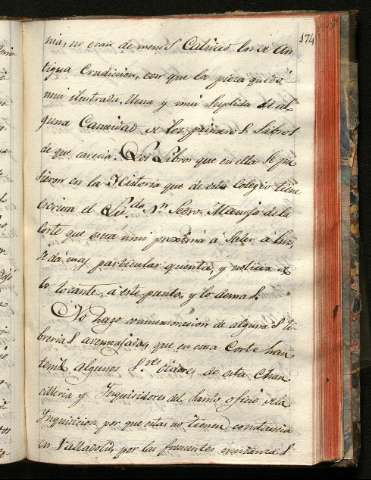 174
nia, no eran de menos Calidad en el An
tigua Erudicion, con que la pieza quedó
mui ilustrada, llena y mui suplida de al
guna Cantidad de los primeros Libros
de que carecia. Los Libros que en ella se pu
sieron en la Historia que de este Colegio tiene
escrita el Lic.do D.n
corte que esta mui proxima á salir á luz,
se dá mas particular quenta, y noticia de
lo tocante, á este punto, y lo demas.
No hago conmemoracion de algunas li
brerias aventajadas, que en esta Corte han
tenido algunos S.res Oidores de esta Chan
cilleria y Inquisidores del Santo oficio de la
Inquisicion por que estas no tienen constancia
en Valladolid, por las frecuentes mudanzas